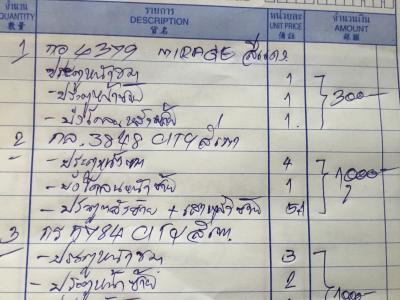 จำนวน รายการ หน่วยละ จำนวนเงิน
QUANTITY DESCRIPTION UNIT PRICE AMOUNT
數量 貨名 價詿 銀額
1 กอ 4379 MIRAGE สีแดง
ประตูหน้าขวา 1
- ประตูหน้าซ้าย 1 300
- บังโคลนหน้าซ้าย 1
2 กล. 3848 CITY สีเทา
- ประตูหน้าขวา 4 1000
- บังโคลนหน้าซ้าย 1
- ประตูหลังซ้าย + เสาหน้าซ้าย 5
3 กร 9784 CITY สีเทา
- ประตูหน้าขวา 3
- ประตูหน้าซ้าย 2